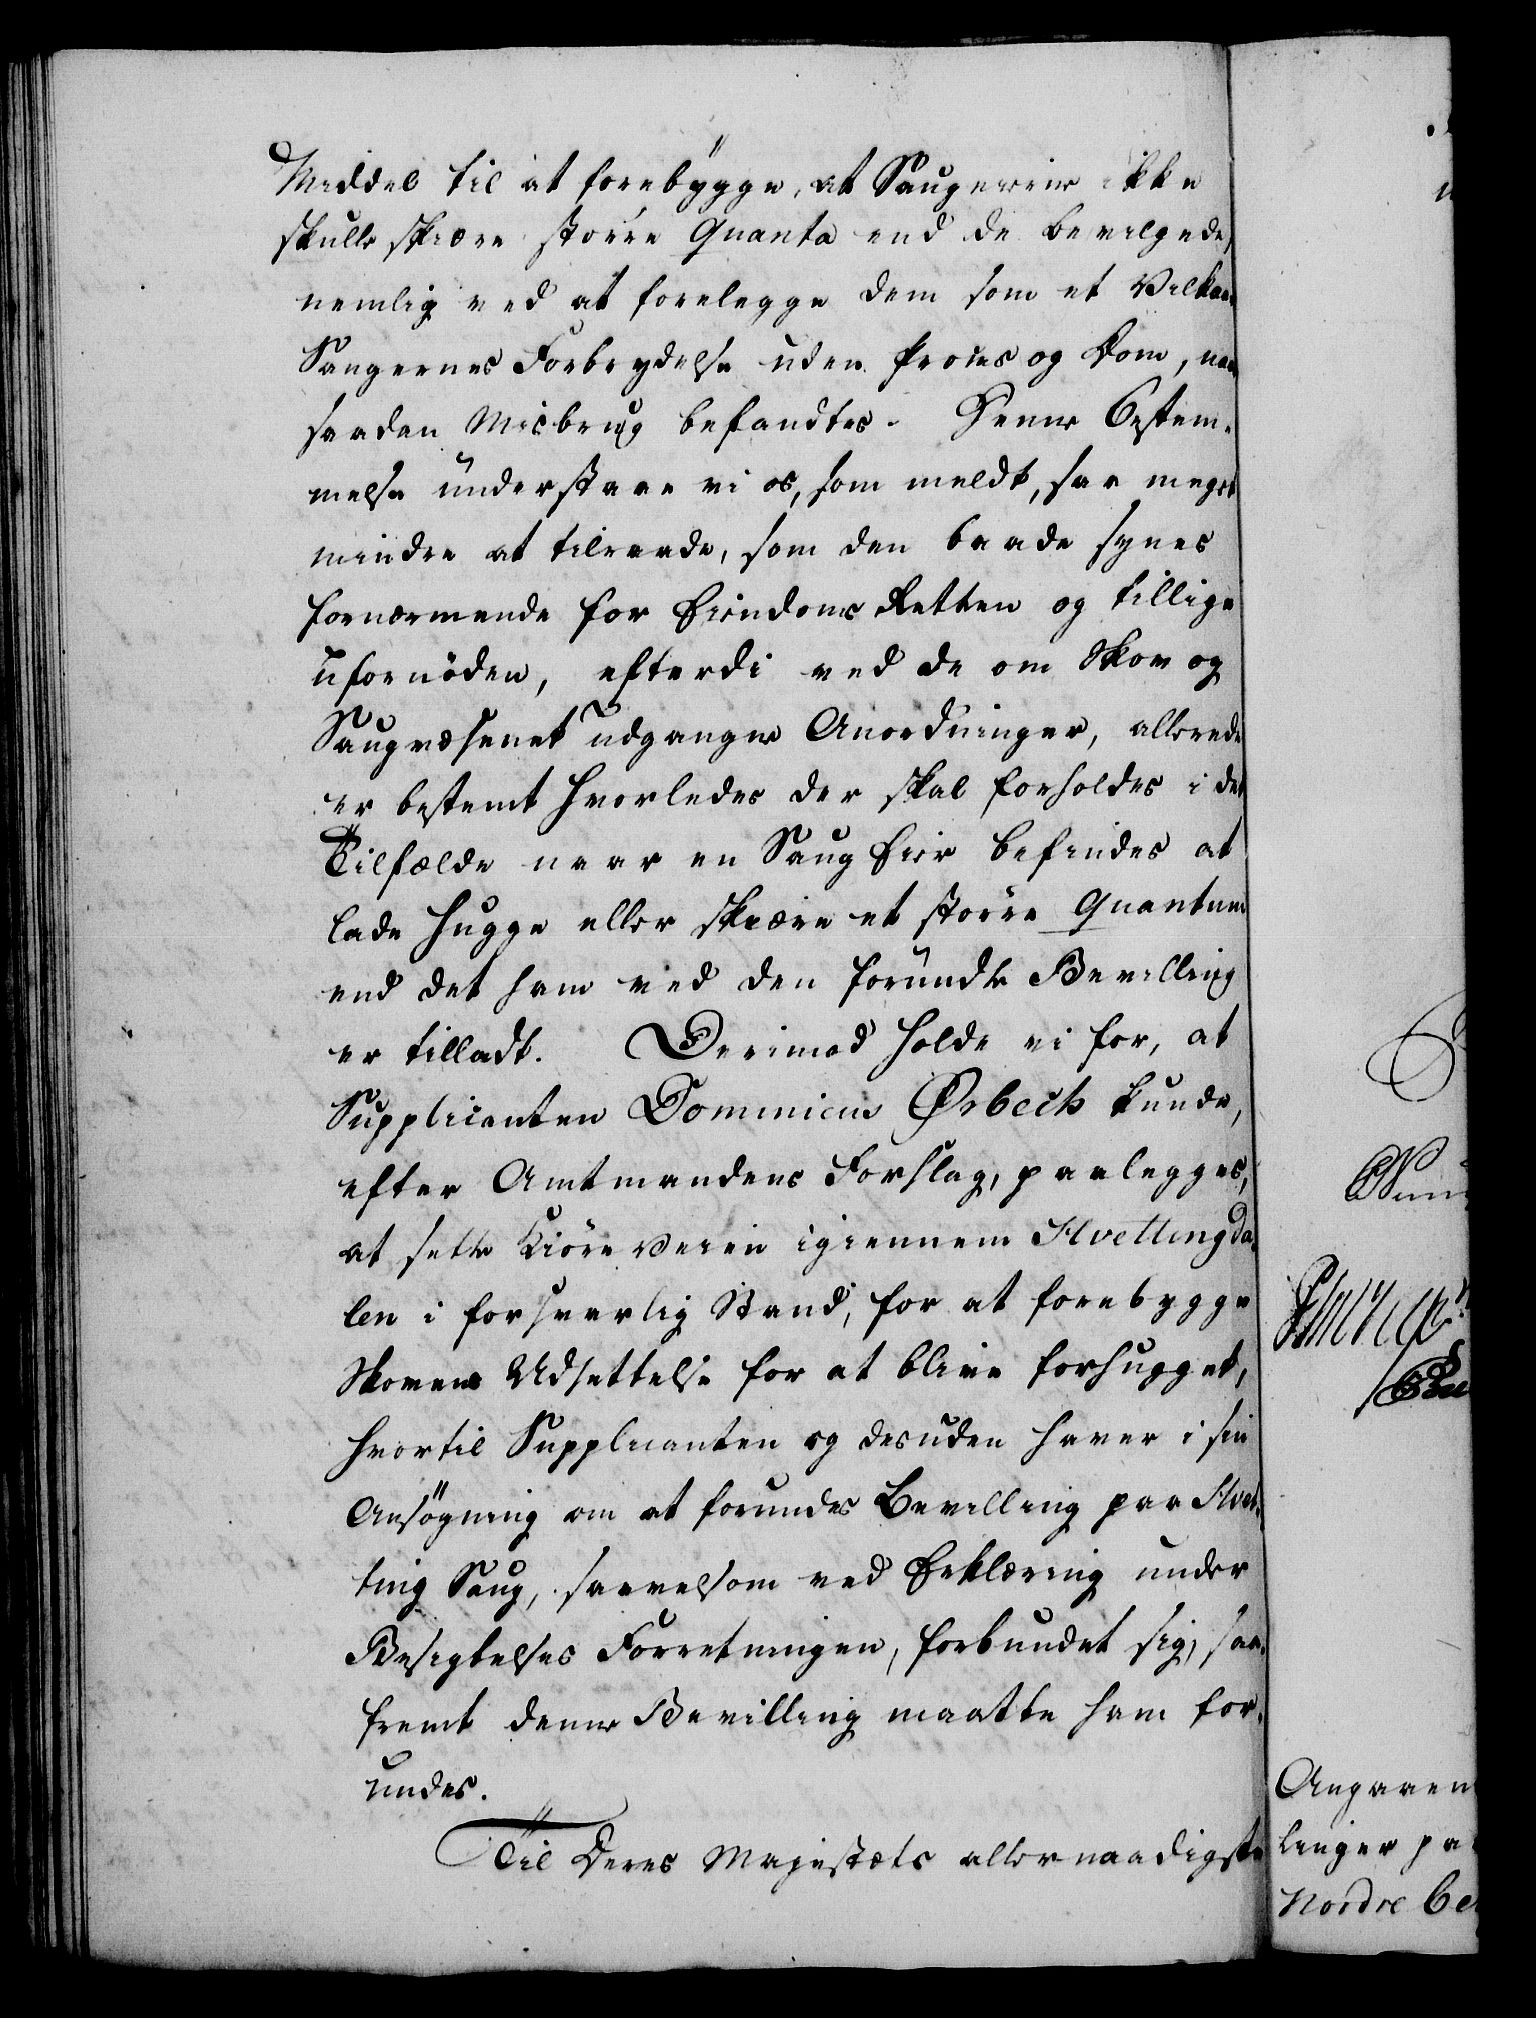 Middel til at forebygge, at Saugeierne ikke
skulle skiære større Quanta end de bevilgede,
nemlig ved at forelegge dem som et Vilkaar
Saugernes Forbrydelse uden Proces og Dom, naar
saadan Misbrug befandtes. Denne Bestem-
melse understaae vi os, som meldt, saa meget
mindre at tilraade, som den baade synes
fornærmende for Eiendoms Retten og tillige
ufornøden, efterdi ved de om Skov og
Saugvæsenet udgangne Anordninger, allerede
er bestemt hvorledes der skal forholdes i det
Tilfælde naar en Saug Eier befindes at
lade hugge eller skiære et større Quantum
end det ham ved den forundte Bevilling
er tilladt. Derimod holde vi for, at
Supplicanten Dominicus Ørbech kunde,
efter Amtmandens Forslag, paalegges,
at sette Kiøreveien igiennem Hvettingda-
len i forsvarlig Stand, for at forebygge
Skovens Udsettelse for at blive forhugget,
hvortil Supplicanten og desuden haver i sin
Ansøgning om at forundes Bevilling paa Hvet-
ting Saug, saavelsom ved Erklæring under
Besigtelses Forretningen, forbundet sig, saa-
fremt denne Bevilling maatte ham for-
undes.
Til Deres Majestæts allernaadigste
Angaaen
linger pa
Nordre Be